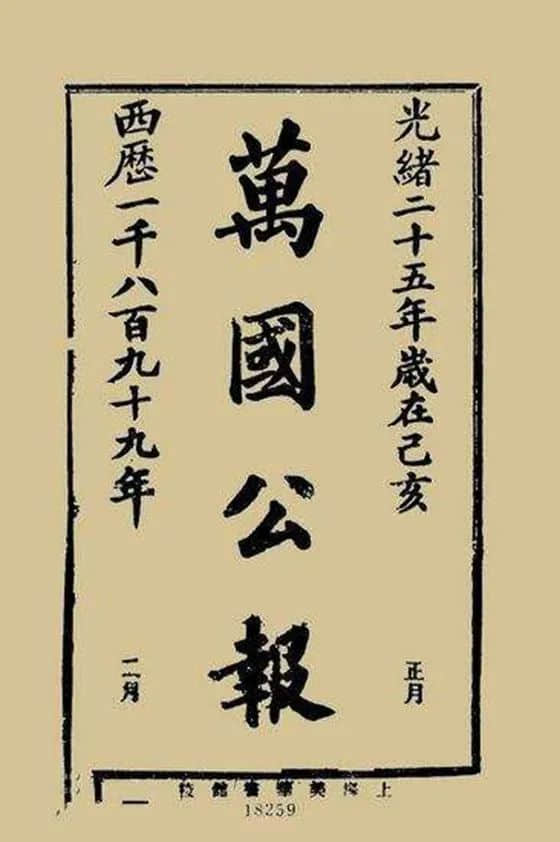 光緒二十五年歲在己亥
正月
萬國公報
西歷一千八百九十九年
二月
上海美華書館校
18259